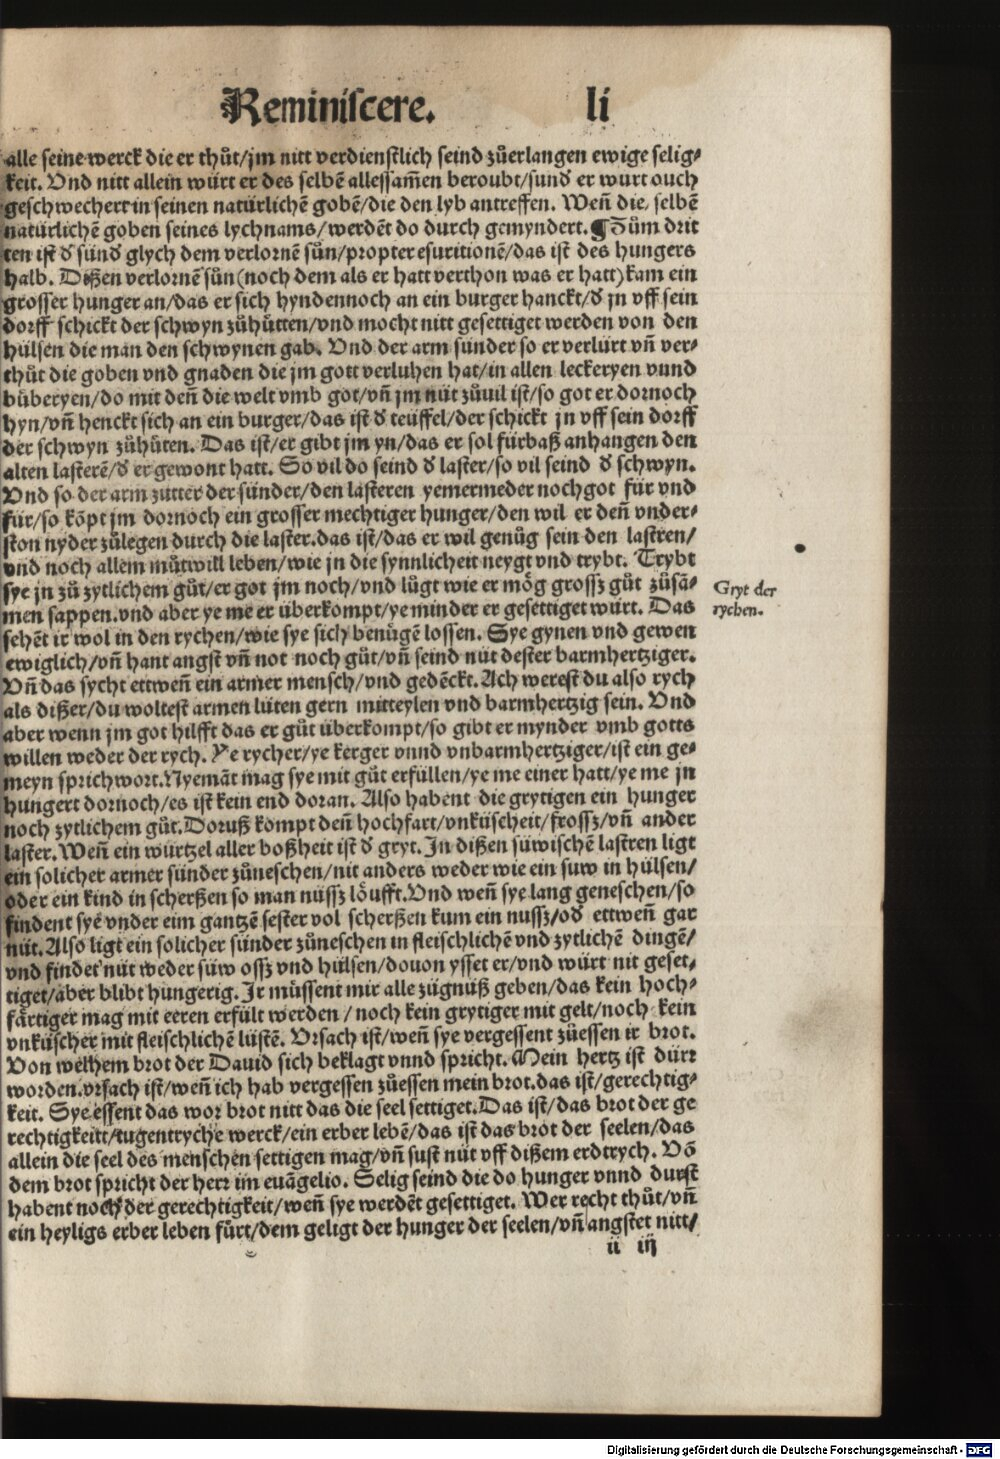 Reminiscere. li
alle seine werck die er thůt/jm nitt verdienstlich seind zůerlangen ewige selig⸗
keit. Vnd nitt allein würt er des selbē allessam̄en beroubt/sund̕ er wurt ouch
geschwechert in seinen natürlichē gobē/die den lyb antreffen. Weñ die selbē
natürlichē goben seines lychnams/werdēt do durch gemyndert. ¶ Zům drit
ten ist d̕ sünd̕ glych dem verlornē sůn/propter esuritionē/das ist des hungers
halb. Dißen verlornē sůn (noch dem als er hatt verthon was er hatt) kam ein
grosser hunger an/das er sich hyndennoch an ein burger hanckt/d̕ jn vff sein
dorff schickt der schwyn zůhůtten/vnd mocht nitt gesettiget werden von den
hülsen die man den schwynen gab. Vnd der arm sunder so er verlürt vñ ver⸗
thůt die goben vnd gnaden die jm gott verluhen hat/in allen leckeryen vund
bůberyen/do mit deñ die welt vmb got/vñ jm nüt zůuil ist/so got er dornoch
hyn/vñ henckt sich an ein burger/das ist d̕ teüffel/der schickt jn vff sein dorff
der schwyn zůhůten. Das ist/er gibt jm yn/das er sol fürbaß anhangen den
alten lasterē/d̕ er gewont hatt. So vil do seind d̕ laster/so vil seind d̕ schwyn.
Vnd so der arm zutter der sünder/den lasteren yemermeder nochgot für vnd
für/so kōpt jm dornoch ein grosser mechtiger hunger/den wil er deñ vnder⸗
ston nyder zůlegen durch die laster.das ist/das er wil genůg sein den lastren/
vnd noch allem můtwill leben/wie jn die synnlicheit neygt vnd trybt. Trybt
sye jn zů zytlichem gůt/er got jm noch/vnd lůgt wie er mög grossz gůt zůsā⸗
men sappen.vnd aber ye me er überkompt/ye minder er gesettiget würt. Das
sehēt ir wol in den rychen/wie sye sich benůgē lossen. Sye gynen vnd gewen
ewiglich/vñ hant angst vñ not noch gůt/vñ seind nüt dester barmhertziger.
Vñ das sycht ettweñ ein armer mensch/vnd gedēckt. Ach werest du also rych
als dißer/du woltest armen lüten gern mitteylen vnd barmhertzig sein. Vnd
aber wenn jm got hilfft das er gůt überkompt/so gibt er mynder vmb gotts
willen weder der rych. Ye rycher/ye kerger vnnd vnbarmhertziger/ist ein ge⸗
meyn sprichwort. Nyemāt mag sye mit gůt erfüllen/ye me einer hatt/ye me jn
hungert dornoch/es ist kein end doran. Also habent die grytigen ein hunger
noch zytlichem gůt. Doruß kompt deñ hochfart/vnküscheit/frossz/vñ ander
laster. Weñ ein würtzel aller boßheit ist d̕ gryt. In dißen süwischē lastren ligt
ein solicher armer sünder zůneschen/nit anders weder wie ein suw in hülsen/
oder ein kind in scherßen so man nüssz löufft. Vnd weñ sye lang geneschen/so
findent sye vnder eim gantzē sester vol scherßen kum ein nussz/od̕ ettweñ gar
nüt. Also ligt ein solicher sünder zůneschen in fleischlichē vnd zytlichē dingē/
vnd findet nüt weder süw ossz vnd hülsen/douon ysset er/vnd würt nit geset⸗
tiget/aber blibt hungerig. Ir müssent mir alle zügnüß geben/das kein hoch⸗
fārtiger mag mit eeren erfült werden / noch kein grytiger mit gelt/noch kein
vnküscher mit fleischlichē lüstē. Vrsach ist/weñ sye vergessent zůessen ir brot.
Von welhem brot der Dauid sich beklagt vnnd spricht. Mein hertz ist dürr
worden.vrsach ist/weñ ich hab vergessen zůessen mein brot.das ist/gerechtig⸗
keit. Sye essent das wor brot nitt das die seel settiget. Das ist/das brot der ge
rechtigkeitt/tugentryche werck/ein erber lebē/das ist das brot der seelen/das
allein die seel des menschen settigen mag/vñ sust nüt vff dißem erdtrych. Vō
dem brot spricht der herr im euāgelio. Selig seind die do hunger vnnd durst
habent noch der gerechtigkeit/weñ sye werdēt gesettiget. Wer recht thůt/vñ
ein heyligs erber leben fürt/dem geligt der hunger der seelen/vñ angstet nitt/
ii iij
Gryt der
rychen.
Digitalisierung gefördert durch die Deutsche Forschungsgemeinschaft - DFG